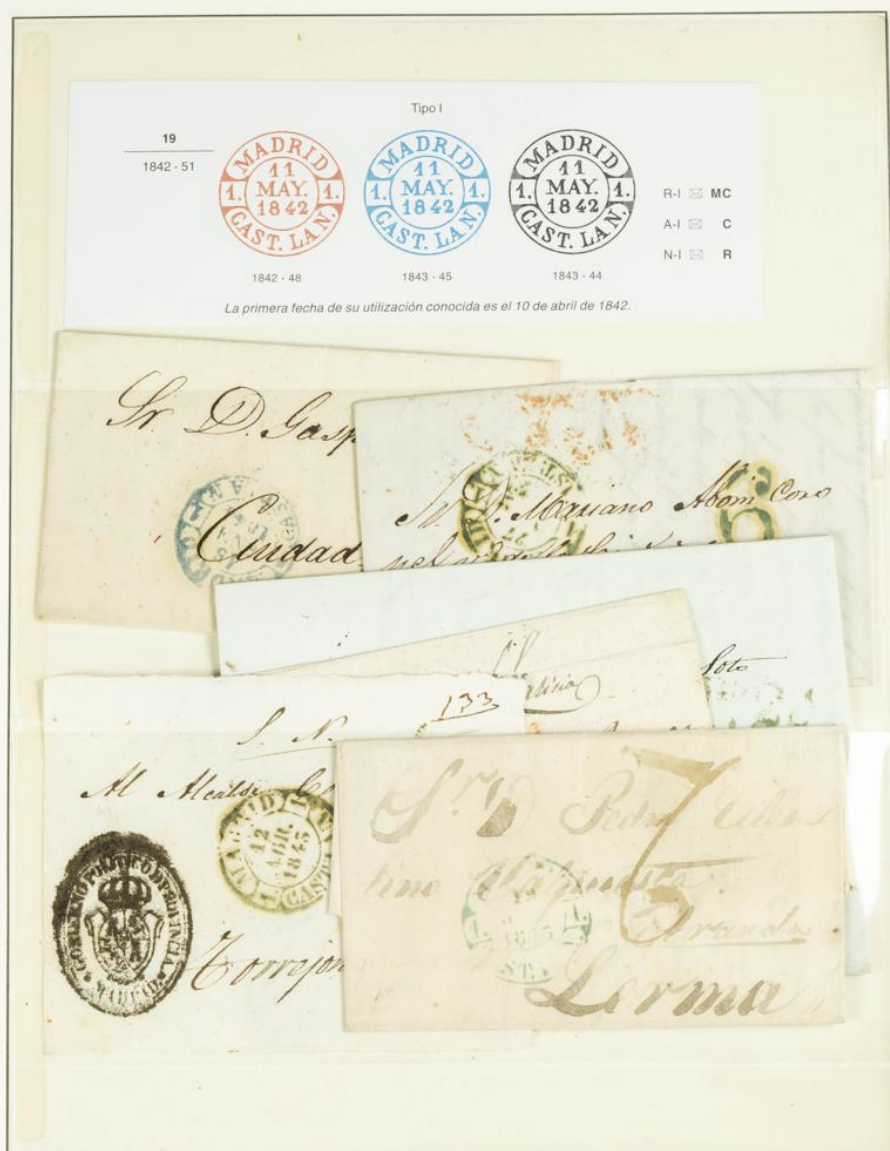 Tipo I
19
1842 - 51
MADRID
11
MAY.
1842
1. 1.
CAST. LA N.
MADRID
11
MAY.
1842
1. 1.
CAST. LA N.
MADRID
11
MAY.
1842
1. 1.
CAST. LA N.
R-I MC
A-I C
N-I R
1842 - 48
1843 - 45
1843 - 44
La primera fecha de su utilización conocida es el 10 de abril de 1842.
Sr. D. Gasp
Ciudad
Sr. D. Mariano
6
Soto
133
S. N.
Al Alcalde
MADRID
12
1845
CAST
GOBIERNO POLITICO D PROVINCIA
MADRID
Torrejon
Sr. D. Pedro
7
Aranda
Lerma
1845